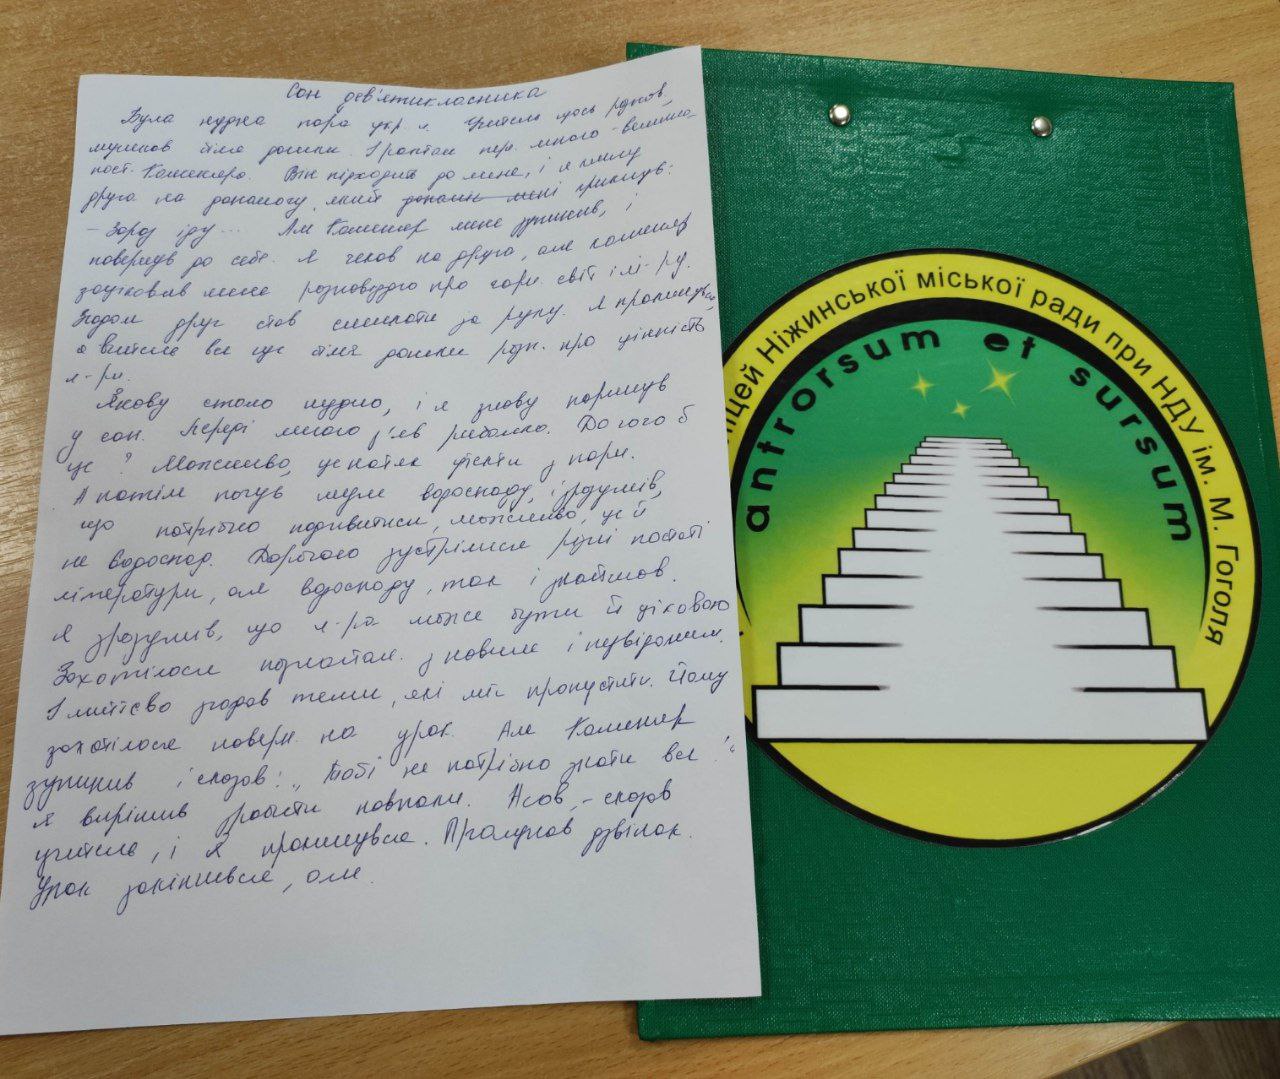 Сон дев'ятикласника
Була нудна пара укр. л. Учитель щось розпов.,
біля дошки. Раптом пер. мною - велична
пост. Каменяра. Він підходить до мене, і я кличу
друга на допомогу, який мені крикнув:
- Зараз іду... Але Каменяр мене зупинив, і
повернув до себе. Я чекав на друга, але каменяр
зацікавив мене розповіддю про чари. світ л-ру.
Згодом друг став смикати за руку. Я прокинувся,
а вчитель все ще біля дошки розп. про цінність
л-ри.
Якову стало нудно, і я знову поринув
у сон. Переді мною з'яв. рибалка. До чого б
це? Можливо, це натяк втекти з пари.
А потім почув шум водоспаду, і зрозумів,
що потрібно подивитися, можливо, це й
не водоспад. Дорогою зустрілися різні постаті
літератури, але водоспаду, так і знайшов.
Я зрозумів, що л-ра може бути й цікавою
Захотілося познайом. з новим і невідомим.
І миттєво згадав теми, які міг пропустити. Йому
захотілося поверн. на урок. Але Каменяр
зупинив і сказав: „Тобі не потрібно знати все!"
Я вирішив зробити навпаки. - сказав
учитель, і я прокинувся. Пролунав дзвінок.
Урок закінчився, але
ліцей Ніжинської міської ради при НДУ ім. М. Гоголя
antrorsum et sursum